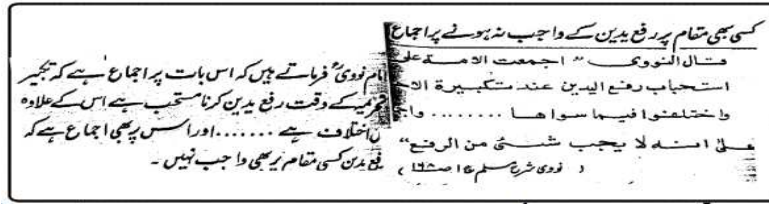 کسی بھی مقام پر رفع یدین کے واجب نہ ہونے پر اجماع
قال النووی "اجمعت الامة علی
استحباب رفع الیدین عند تکبیرة الاح
واختلفوا فیما سواها ........ واج
علیٰ انه لا یجب شئی من الرفع"
( نووی شرح مسلم ج۱ ص۱۶۸ )
امام نوویؒ فرماتے ہیں کہ اس بات پر اجماع ہے کہ تکبیر
تحریمہ کے وقت رفع یدین کرنا مستحب ہے اس کے علاوہ
ں اختلاف ہے ....... اور اس پر بھی اجماع ہے کہ
رفع یدین کسی مقام پر بھی واجب نہیں ۔